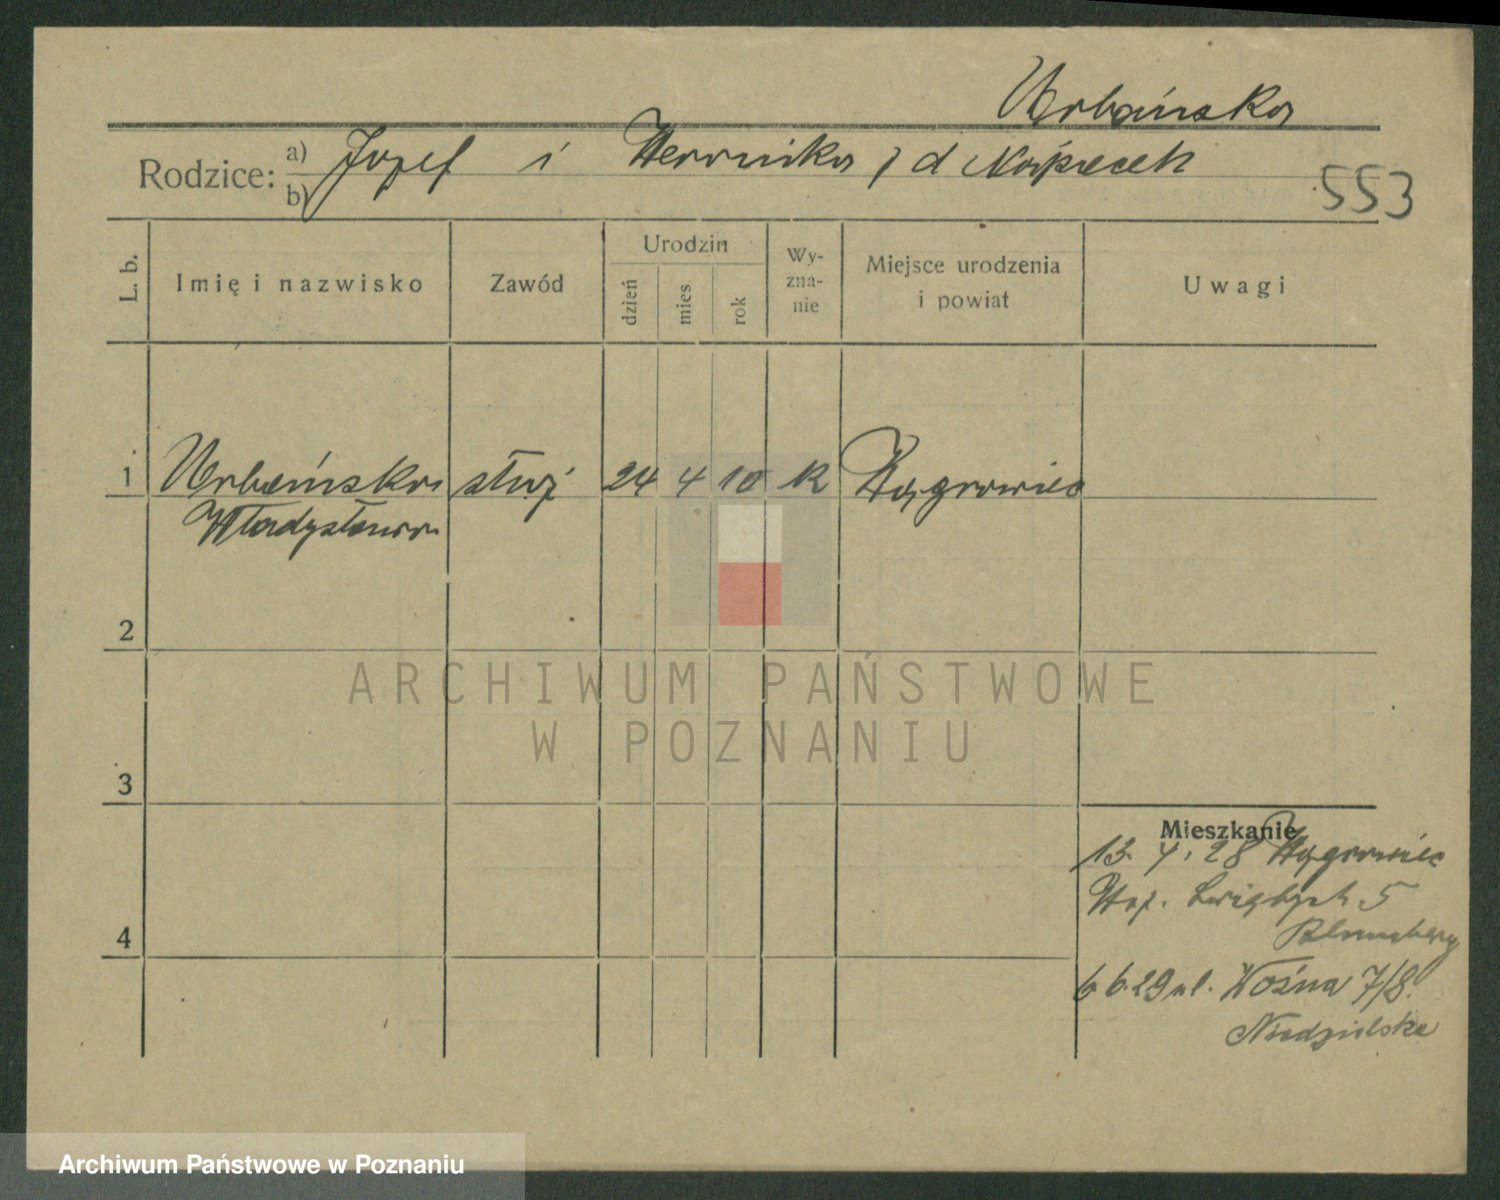 Urbańska
Rodzice: a) Józef i Weronika z d
b)
553
L. b.
Imię i nazwisko
Zawód
Urodzin
dzień
mies
rok
Wy-
zna-
nie
Miejsce urodzenia
i powiat
Uwagi
1 Urbańska służ 24 4 10 k Wągrowiec
Władysława
2
ARCHIWUM PAŃSTWOWE
W POZNANIU
3
4
Mieszkanie
13. 4. 28 Wągrowiec
5
6 6. 29 ul. Woźna 7/8.
Niedzielska
Archiwum Państwowe w Poznaniu